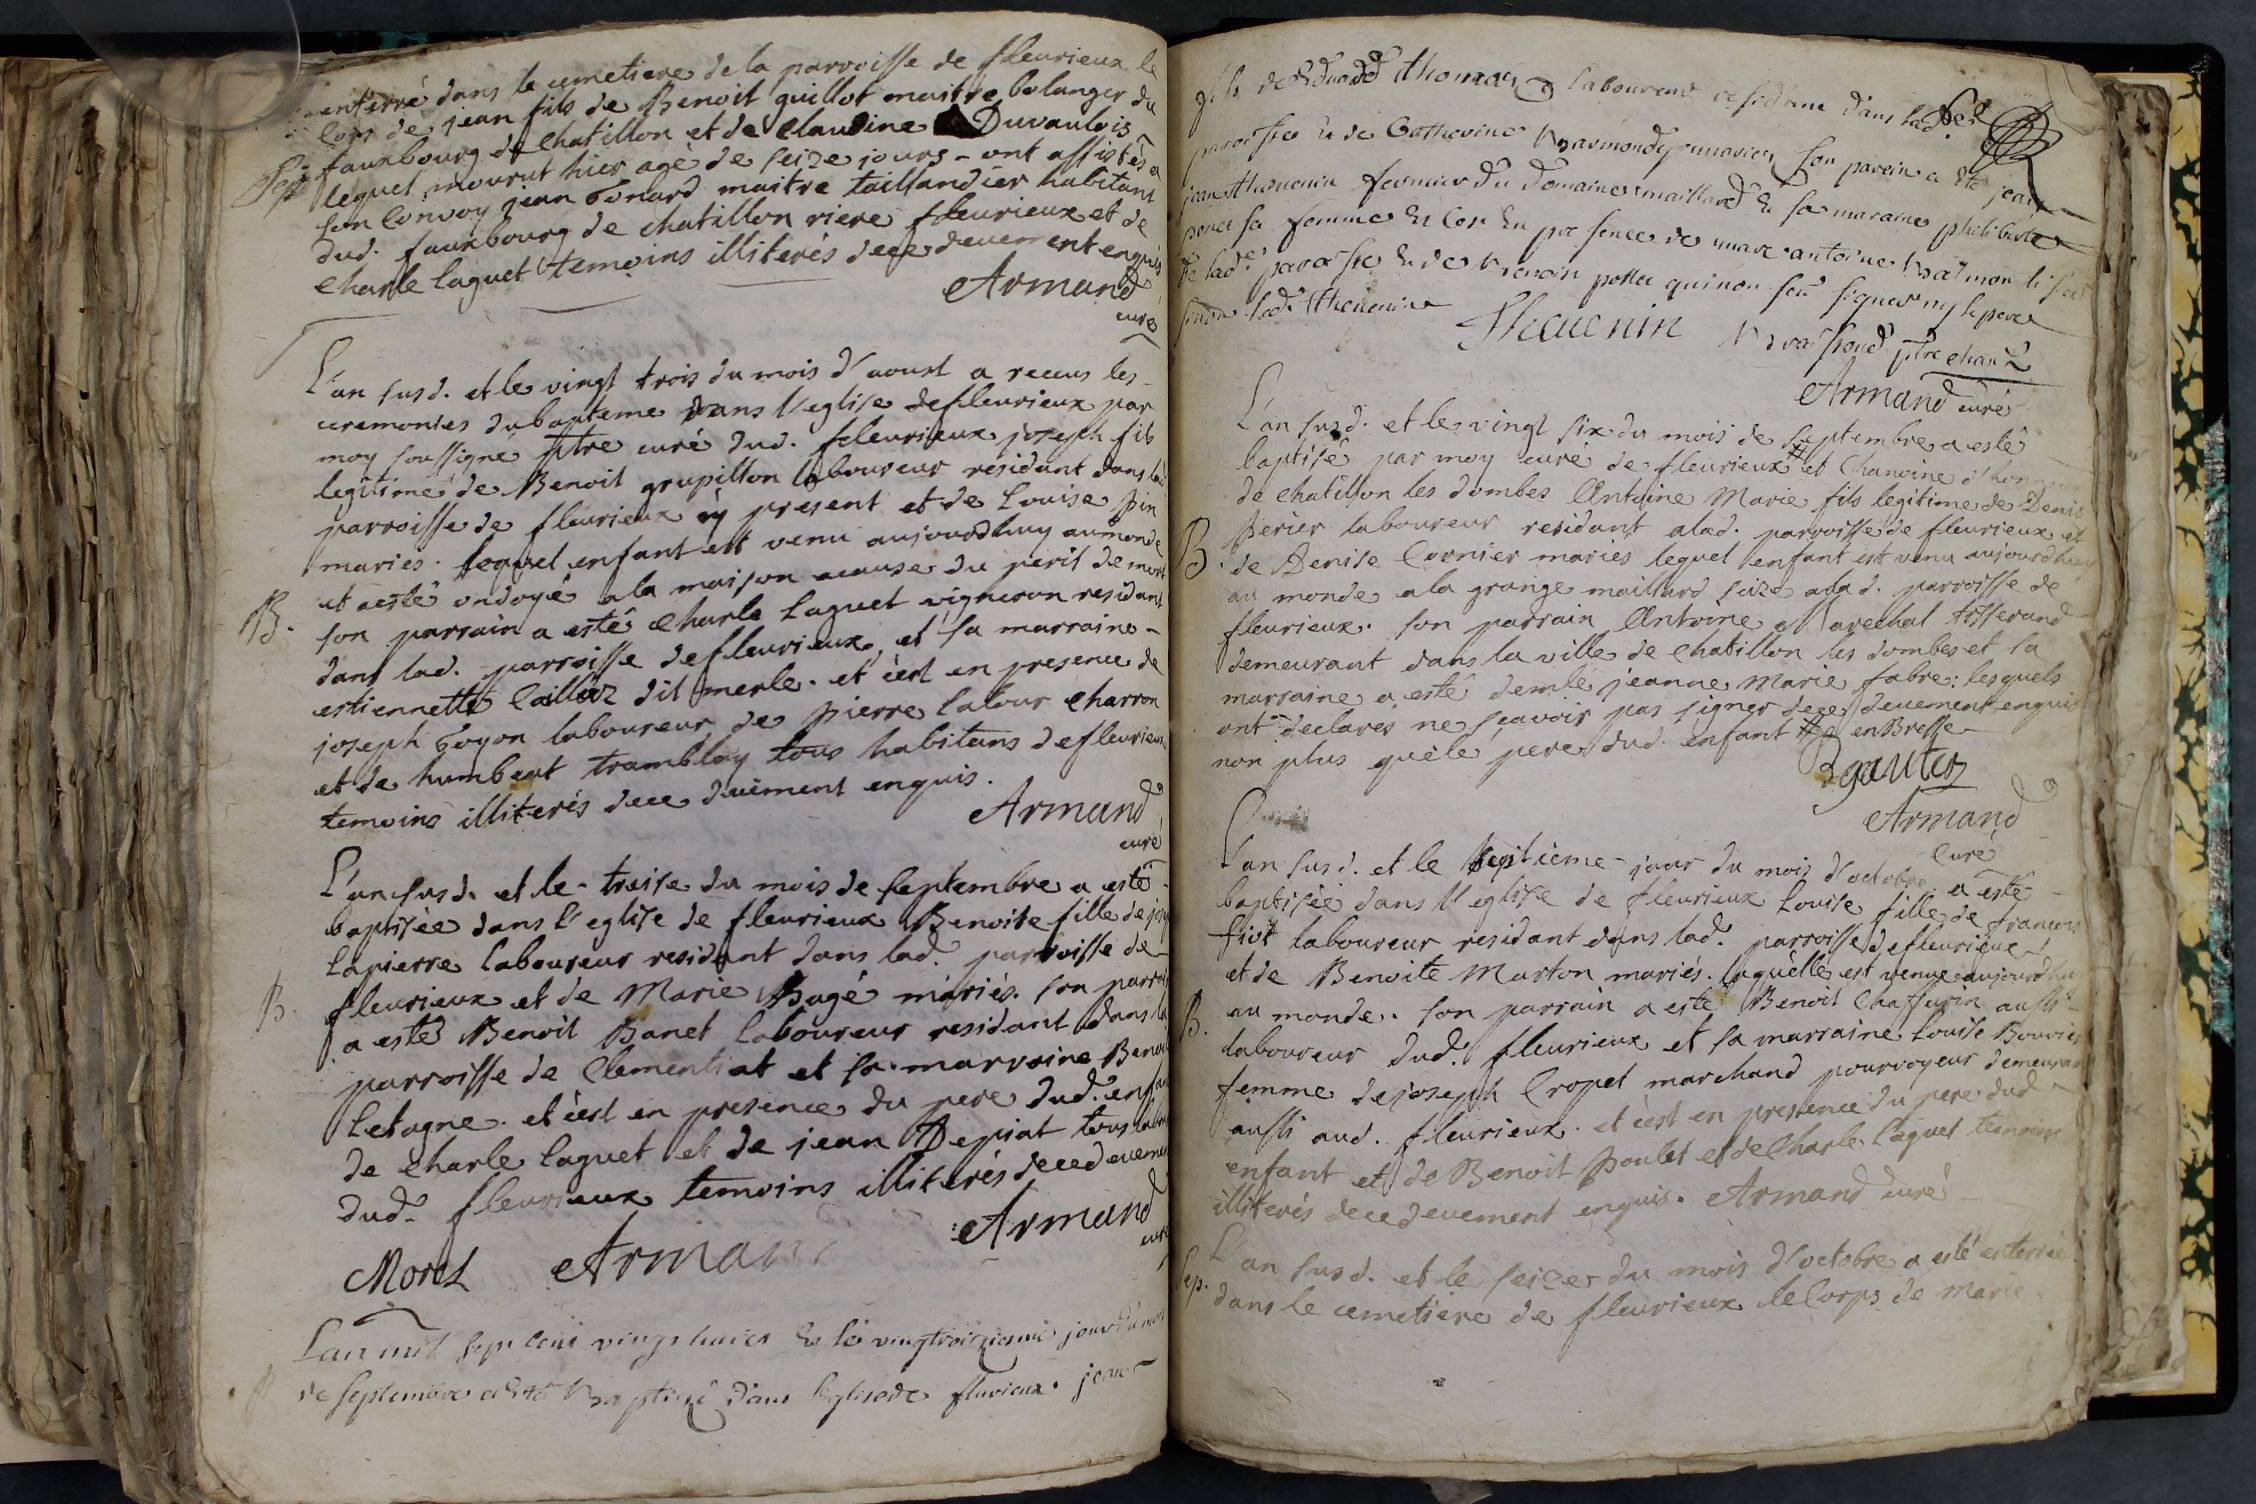 enterré dans le cemetiere de la parroisse de fleurieux le
Corps de jean fils de Benoit guillot maitre bolanger du
fauxbourg de chatillon et de Claudine Duvaulois
Sep. lequel mourut hier agé de seize jours - ont assistés a
son Convoy jean Bonard maitre taillandier habitant
dud. fauxbourg de chatillon riere fleurieux et de
Charle laguet temoins illiterés de ce deuement enquis
Armand
curé
L'an susd. et le vingt trois du mois d'aoust a receus les
ceremonies du bauteme dans l'eglise de fleurieux par
moy soussigné ptre curé dud. fleurieux joseph fils
legitime de Benoit grupillon laboureur residant dans lad
parroisse de fleurieux cy present et de Louise pin
mariés. lequel enfant est venu aujourdhuy au monde
et a esté ondoyé a la maison acause du peril de mort
B. son parrain a esté Charle laguet vigneron residant
dans lad. parroisse de fleurieux, et sa marraine
estiennette dit merle. et c'est en presence de
joseph goyon laboureur de pierre latour charron
et de humbert tramblay tous habitans de fleurieux
temoins illiterés de ce duëment enquis.
Armand
curé
L'an susd. et le treise du mois de septembre a esté
baptisée dans l'eglise de fleurieux Benoite fille de
Lapierre laboureur residant dans lad. parroisse de
B. fleurieux et de Marie Bagé mariés. son parrain
a esté Benoit Banet laboureur residant dans la
parroisse de Clementiat et sa marraine
Letagne. et c'est en presence du pere dud. enfant
de Charle laguet et de jean Depiat tous
dud. fleurieux temoins illiterés de ce
Armand
curé
Morel Armand
Lan mil sept cent vingt huict & le vingtroizieme jour du mois
de septembre a esté Baptizé dans leglise de flurieux jean
fils de thomas laboureur residant dans lad.
paroisse & de Catherine mariez son parein a été jean
jean thevenin fermier du domaine maillard & sa maraine philiberte
sa femme & ce en presence de marc antoine
de lad. paroisse & de qui non sceu signer ny le pere
sinon led. thevenin
Theuenin ptre chan
Armand curé
L'an susd. et le vingt six du mois de septembre a esté
baptisé par moy curé de fleurieux # et Chanoine
de chatillon les dombes Antoine Marie fils legitime de Denis
perier laboureur residant a lad. parroisse de fleurieux et
B. de Denise Cornier mariés lequel enfant est venu aujourdhuy
au monde a la grange maillard size a lad. parroisse de
fleurieux. son parrain Antoine Marechal tisserand
demeurant dans la ville de chatillon les dombes et sa
marraine a esté demle jeanne Marie fabre: lesquels
ont declarés ne sçavoir pas signer de ce deuement enquis
non plus que le pere dud. enfant # en Bresse
Dgautier
Armand
Curé
L'an susd. et le septieme jour du mois d'octobre a esté
baptisée dans l'eglise de fleurieux Louise fille de francois
fiot laboureur residant dans lad. parroisse de fleurieux
et de Benoite Marton mariés. laquelle est venue aujourdhuy
B. au monde. son parrain a esté Benoit Chaffurin aussi
laboureur dud. fleurieux et sa marraine Louise Bouvier
femme de joseph Cropet marchand pourvoyeur demeurant
aussi aud. fleurieux. et c'est en presence du pere dud
enfant et de Benoit poulet et de Charle laguet temoins
illiterés de ce deuement enquis. Armand curé
Sep. L'an susd. et le seize du mois d'octobre a esté enterrée
dans le cemetiere de fleurieux le Corps de Marie